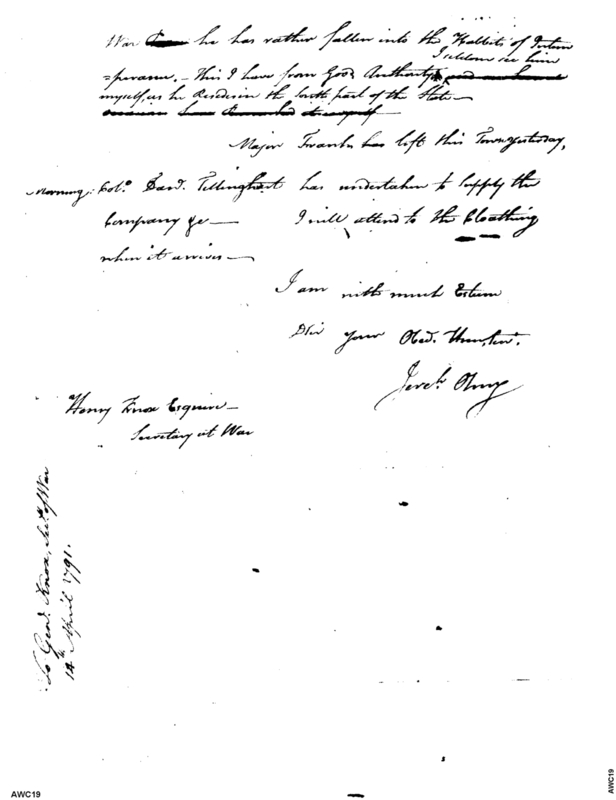 War he has rather fallen into the Habbits of Intem
I seldom see him
=perance. — This I have from Good Authority,
myself, as he Resides in the South part of the State —
Major Franks has left this Town yesterday,
Morning: Col.º Dan.l Tillinghast has undertaken to Supply the
Company &c — I will attend to the Cloathing
when it arrives —
I am with much Esteem
Sir your Obed.t Hum. Serv.t
Jere.h Olney
Henry Knox Esquire —
Secretary at War
To Gen.l Knox, Sec.y of War
14th April 1791.
AWC19
AWC19